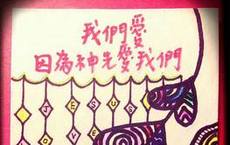 我們愛
因為神先愛我們
JESUS
LOVE